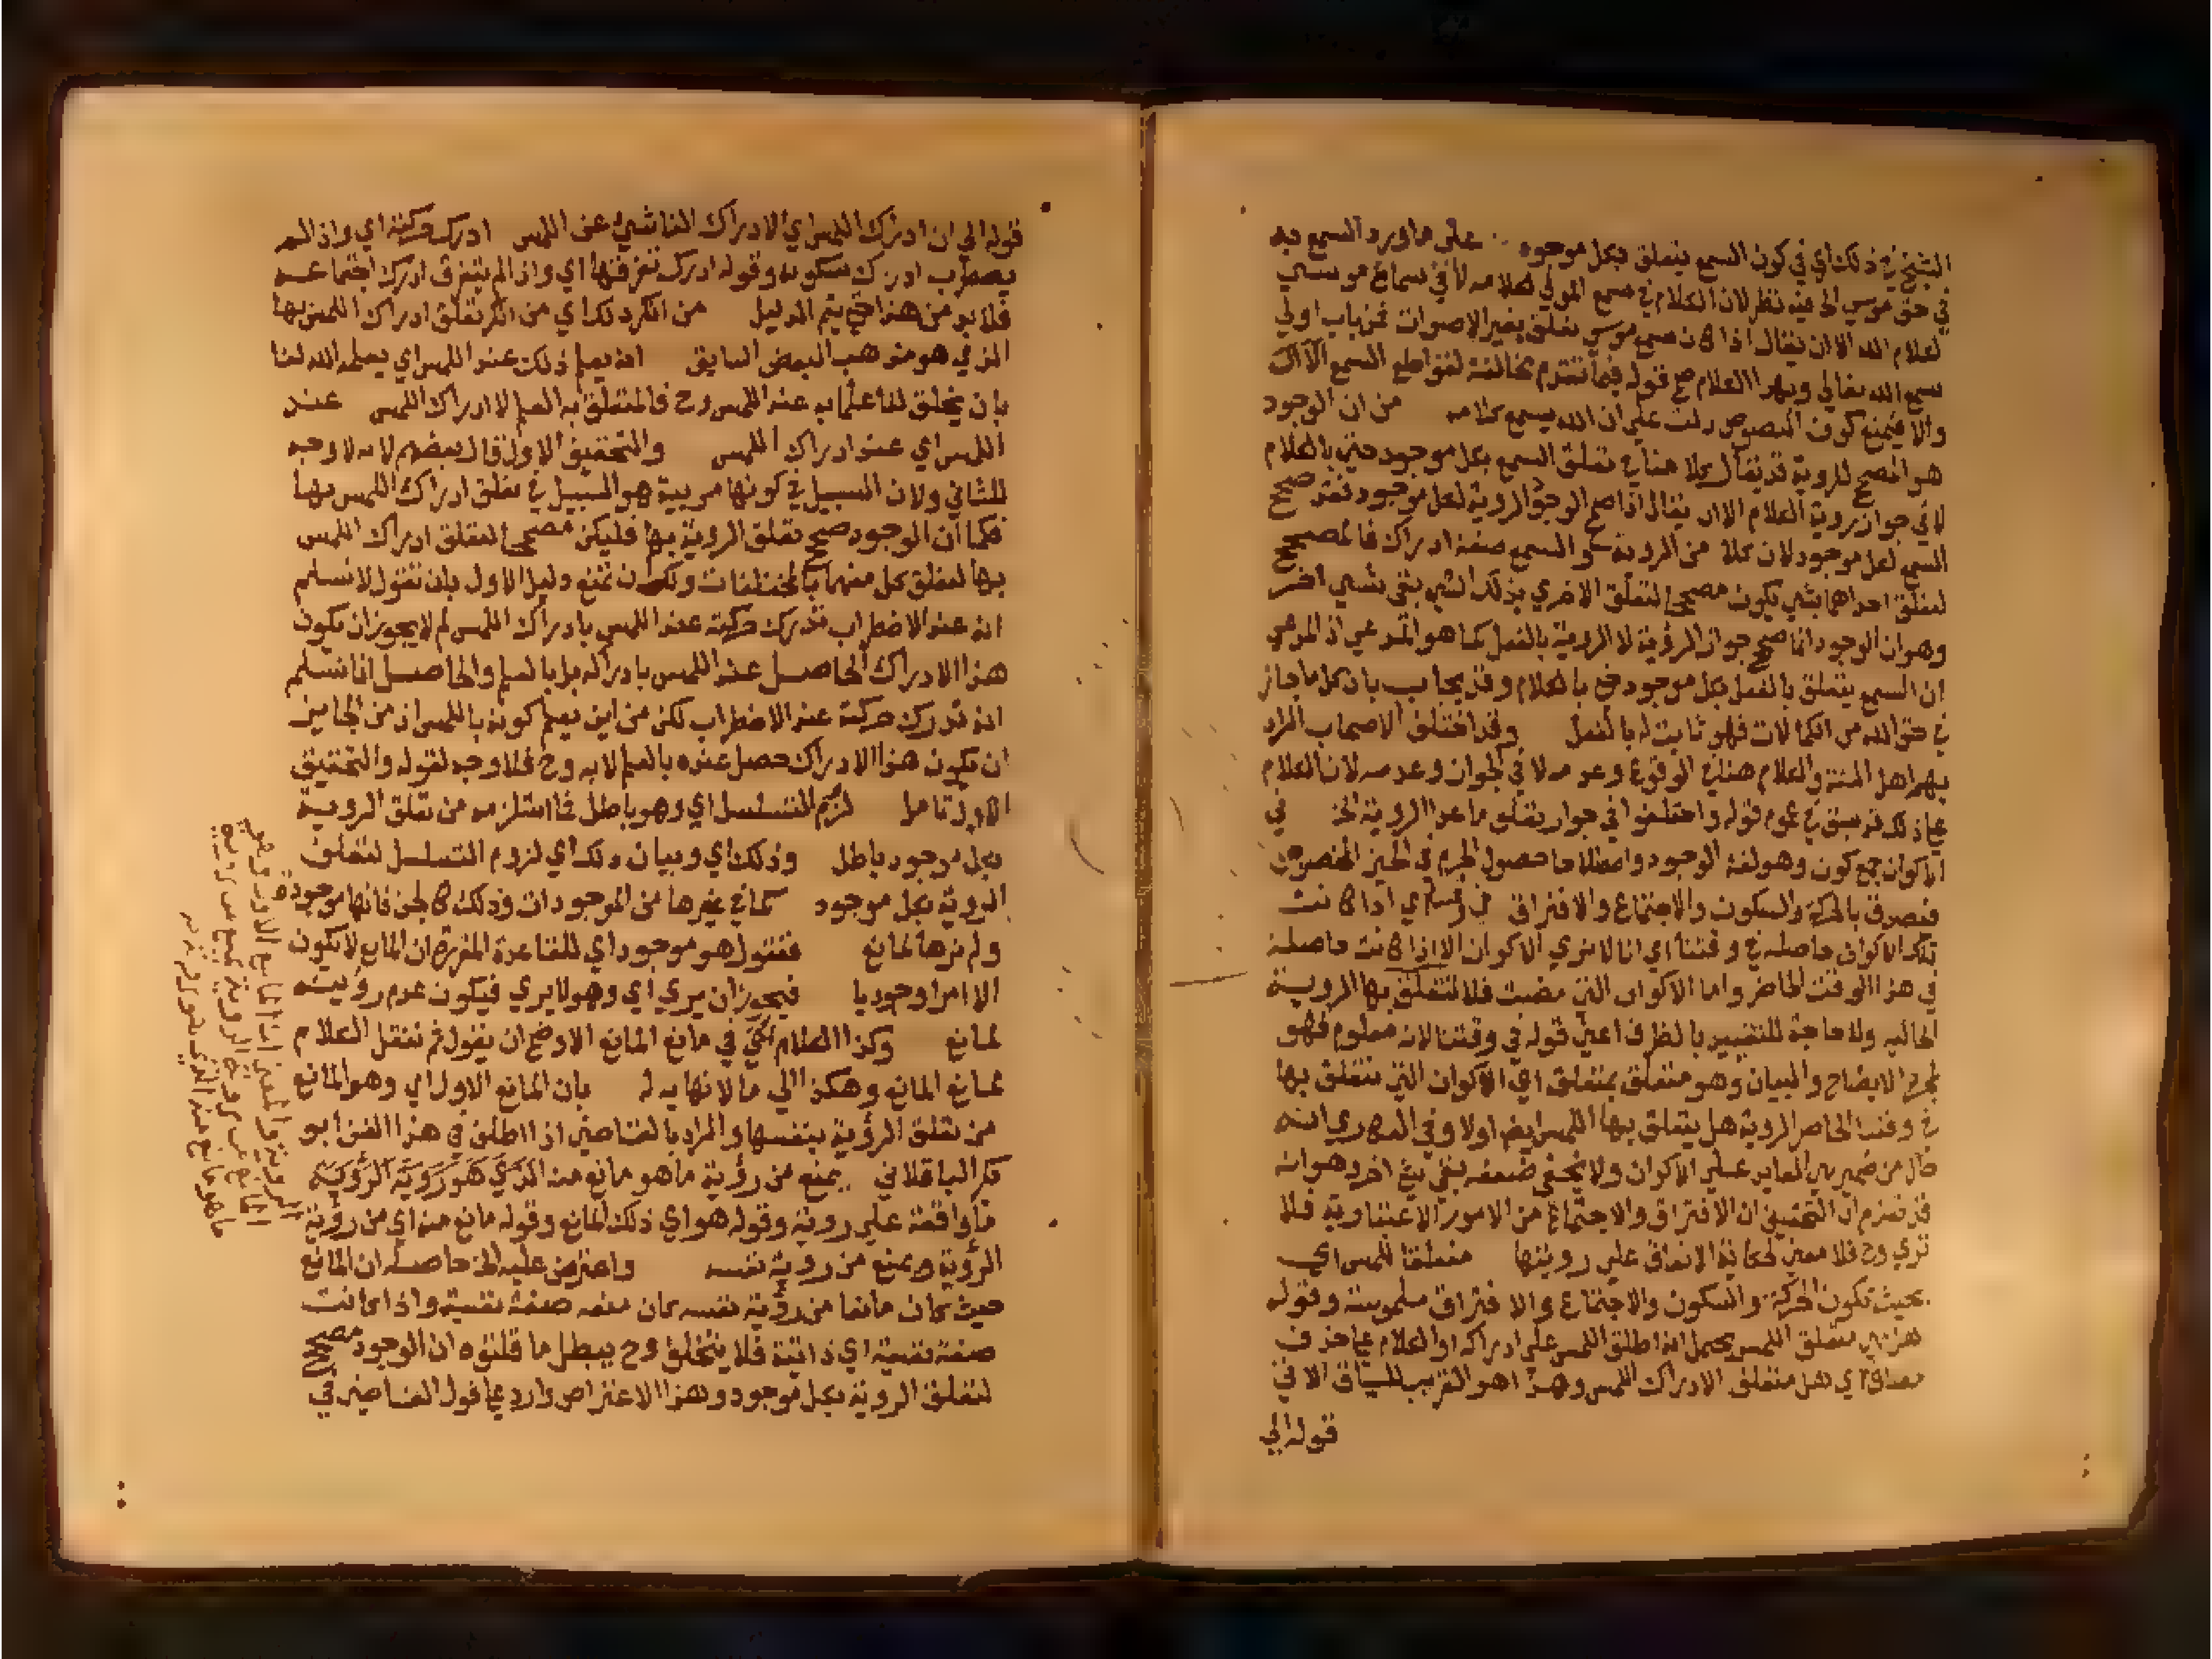 الشيخ في ذلك اي في كون السمع يتعلق بكل موجود على ما ورد السمع به
في حق موسى الخ فيه نظر لان الكلام في سمع المولى لكلامه لا في سماع موسى
لكلام الله الا ان يقال اذا كان سمع موسى تعلق بغير الاصوات فمن باب اولى
سمع الله تعالى وبهذا الكلام صح قوله فيما تقدم مخالفة لقواطع السمع
والا فيمنع كون النصوص دلت على ان الله يسمع كلامه من ان الوجود
هو المصحح للروية قد يقال كلامنا في تعلق السمع بكل موجود حتى بالكلام
لا في جواز روية الكلام الا ان يقال اذا صح الوجود الروية لكل موجود فقد صحح
السمع لكل موجود لان كلا من الروية والسمع صفة ادراك فالمصحح
لتعلق احداهما بشي يكون مصححا لتعلق الاخرى بذلك الشي بقى شي اخر
وهو ان الوجود انما صحح جواز الرؤية لا الروية بالفعل كما هو المدعى اذ المدعى
ان السمع يتعلق بالفعل بكل موجود حتى بالكلام وقد يجاب بان كل ما جاز
في حق الله من الكمالات فهو ثابت له بالفعل وقد اختلف الاصحاب المراد
بهم اهل السنة والكلام هنا في الوقوع وعدمه لا في الجواز وعدمه لان الكلام
على ذلك قد سبق في عموم قوله واختلفوا في جواز تعلق ما عدا الروية الخ في
الاكوان جمع كون وهو لغة الوجود واصطلاحا حصول الجرم في الحيز المخصوص
فيصدق بالحركة والسكون والاجتماع والافتراق في وقتنا اي اذا كانت
تلك الاكوان حاصلة في وقتنا اي انا لا نرى الاكوان الا اذا كانت حاصلة
في هذا الوقت الحاضر واما الاكوان التي مضت فلا تتعلق بها الروية
الحالية ولا حاجة للتقييد بالظرف اعني قوله في وقتنا لانه معلوم فهو
لمجرد الايضاح والبيان وهو متعلق بمتعلق اي الاكوان التي تتعلق بها
في وقتنا الحاضر الروية هل يتعلق بها اللمس ايضا اولا وفي السكري انه
حال من ضمير هي العايد على الاكوان ولا يخفى ضعفه بقي شي اخر وهو انه
قد تقدم ان التحقيق ان الافتراق والاجتماع من الامور الاعتبارية فلا
ترى وح فلا معنى لحكاية الاتفاق على رويتها متعلقا للمس اي
بحيث تكون الحركة والسكون والاجتماع والافتراق ملموسة وقوله
هل هي متعلق اللمس يحتمل انه اطلق اللمس على ادراكه او الكلام على حذف
مضاف اي هل متعلق الادراك اللمس وهذا هو القريب للسياق الاتي
قوله الى
قوله الى ان ادراك اللمس اي الادراك الناشئ عن اللمس ادرك حركته اي واذا لم
يضطرب ادرك سكونه وقوله ادرك تفرقها اي واذا لم يتفرق ادرك اجتماعه
فلا بد من هذا حتى يتم الدليل من انكر ذلك اي من انكر تعلق ادراك اللمس بها
الذي هو مذهب البعض السابق انه يعلم ذلك عند اللمس اي يعلمه الله لنا
بان يخلق لنا علما به عند اللمس وح فالمتعلق به العلم لا ادراك اللمس عند
اللمس اي عند ادراك اللمس والتحقيق الاول قال بعضهم لانه لا وجه
للثاني ولان السبيل في كونها مريية هو السبيل في تعلق ادراك اللمس بها
فكما ان الوجود صحح تعلق الروية بها فليكن مصححا لتعلق ادراك اللمس
بها لتعلق كل منهما بالمختلفات ولك ان تمنع دليل الاول بان تقول لا نسلم
انه عند الاضطراب تدرك حركته عند اللمس بادراك اللمس لم لا يجوز ان يكون
هذا الادراك الحاصل عند اللمس بادراكه بل بالعلم والحاصل انا نسلم
انه تدرك حركته عند الاضطراب لكن من اين يعلم كونه باللمس اذ من الجايز
ان يكون هذا الادراك حصل عنده بالعلم لا به وح فلا وجه لقوله والتحقيق
الاول تامل لزم التسلسل اي وهو باطل فما استلزمه من تعلق الروية
بكل موجود باطل وذلك اي وبيان ذلك اي لزوم التسلسل لتعلق
الروية بكل موجود كما في غيرها من الموجودات وذلك كالجن فانها موجودة
ولم نرها لمانع فنقول هو موجود اي للقاعدة المقررة ان المانع لا يكون
الا امرا وجوديا فيجوز ان يرى اي وهو لا يرى فيكون عدم رؤيته
لمانع وكذا الكلام حتى في مانع المانع الاوضح ان يقول ثم ننقل الكلام
لمانع المانع وهكذا الى ما لا نهاية له بان المانع الاول اي وهو المانع
من تعلق الرؤية بنفسها والمراد بالقاضي اذا اطلق في هذا الفن ابو
بكر الباقلاني يمنع من رؤية ما هو مانع منه الذي هو روية الروية
فما واقعة على روية وقوله هو اي ذلك المانع وقوله مانع منه اي من رؤية
الرؤية ويمنع من روية نفسه واعترض عليه الخ حاصله ان المانع
حيث كان مانعا من رؤية نفسه كان منعه صفة نفسية واذا كانت
صفة نفسية اي ذاتية فلا يتخلف وح يبطل ما قلتوه ان الوجود مصحح
لتعلق الروية بكل موجود وهذا الاعتراض وارد على قول القاضي في